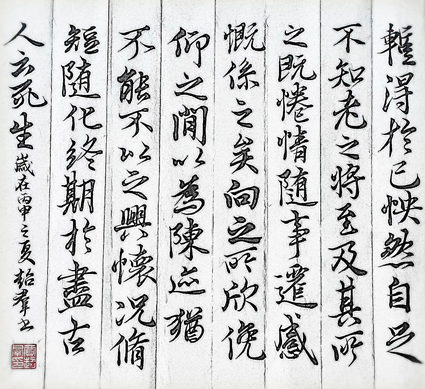 暫得於己怏然自足
不知老之將至及其所
之既惓情隨事遷感
慨係之矣向之所欣俛
仰之閒以為陳迹猶
不能不以之興懷況脩
短隨化終期於盡古
人云死生歲在丙申之夏群书